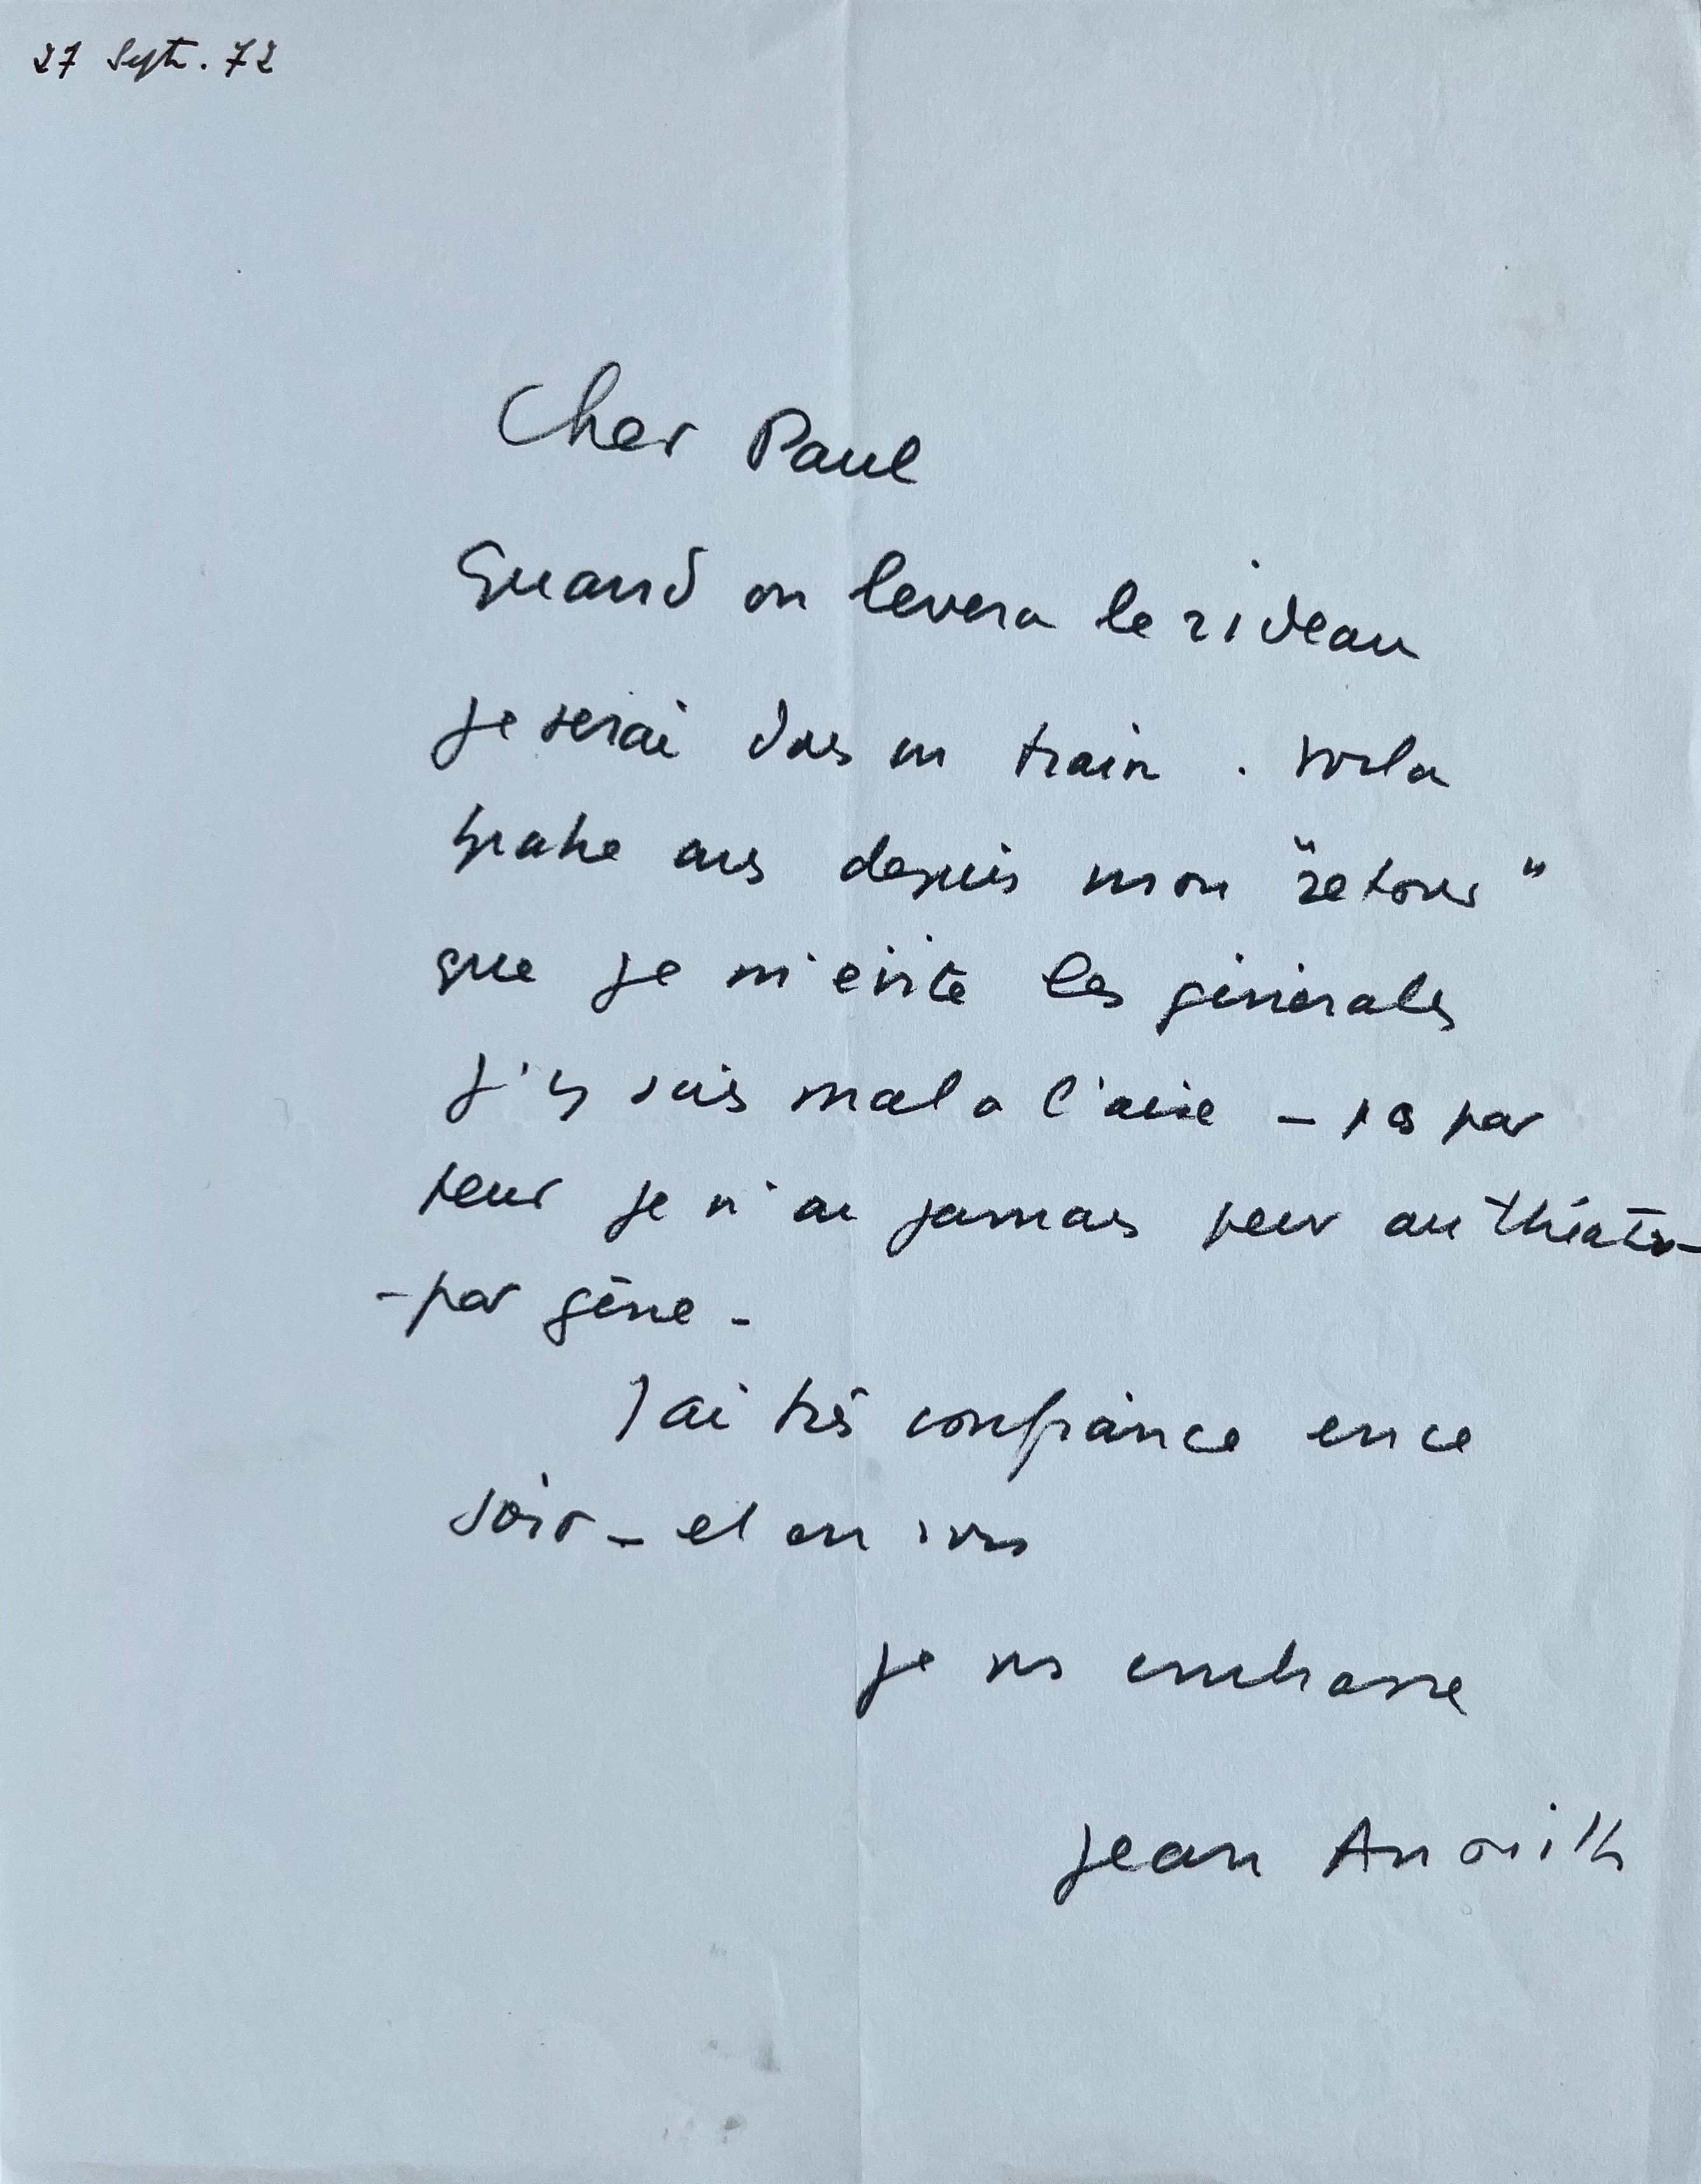 27 Sept. 72
Cher Paul
Quand on levera le rideau
je serai dans un train. Voila
quatre ans depuis mon "retour"
que je m'évite les générales
J'y suis mal a l'aise – pas par
peur je n'ai jamais peur au théatre –
– par gêne –
J'ai très confiance en ce
soir – et en vous
je vs embrasse
Jean Anouilh